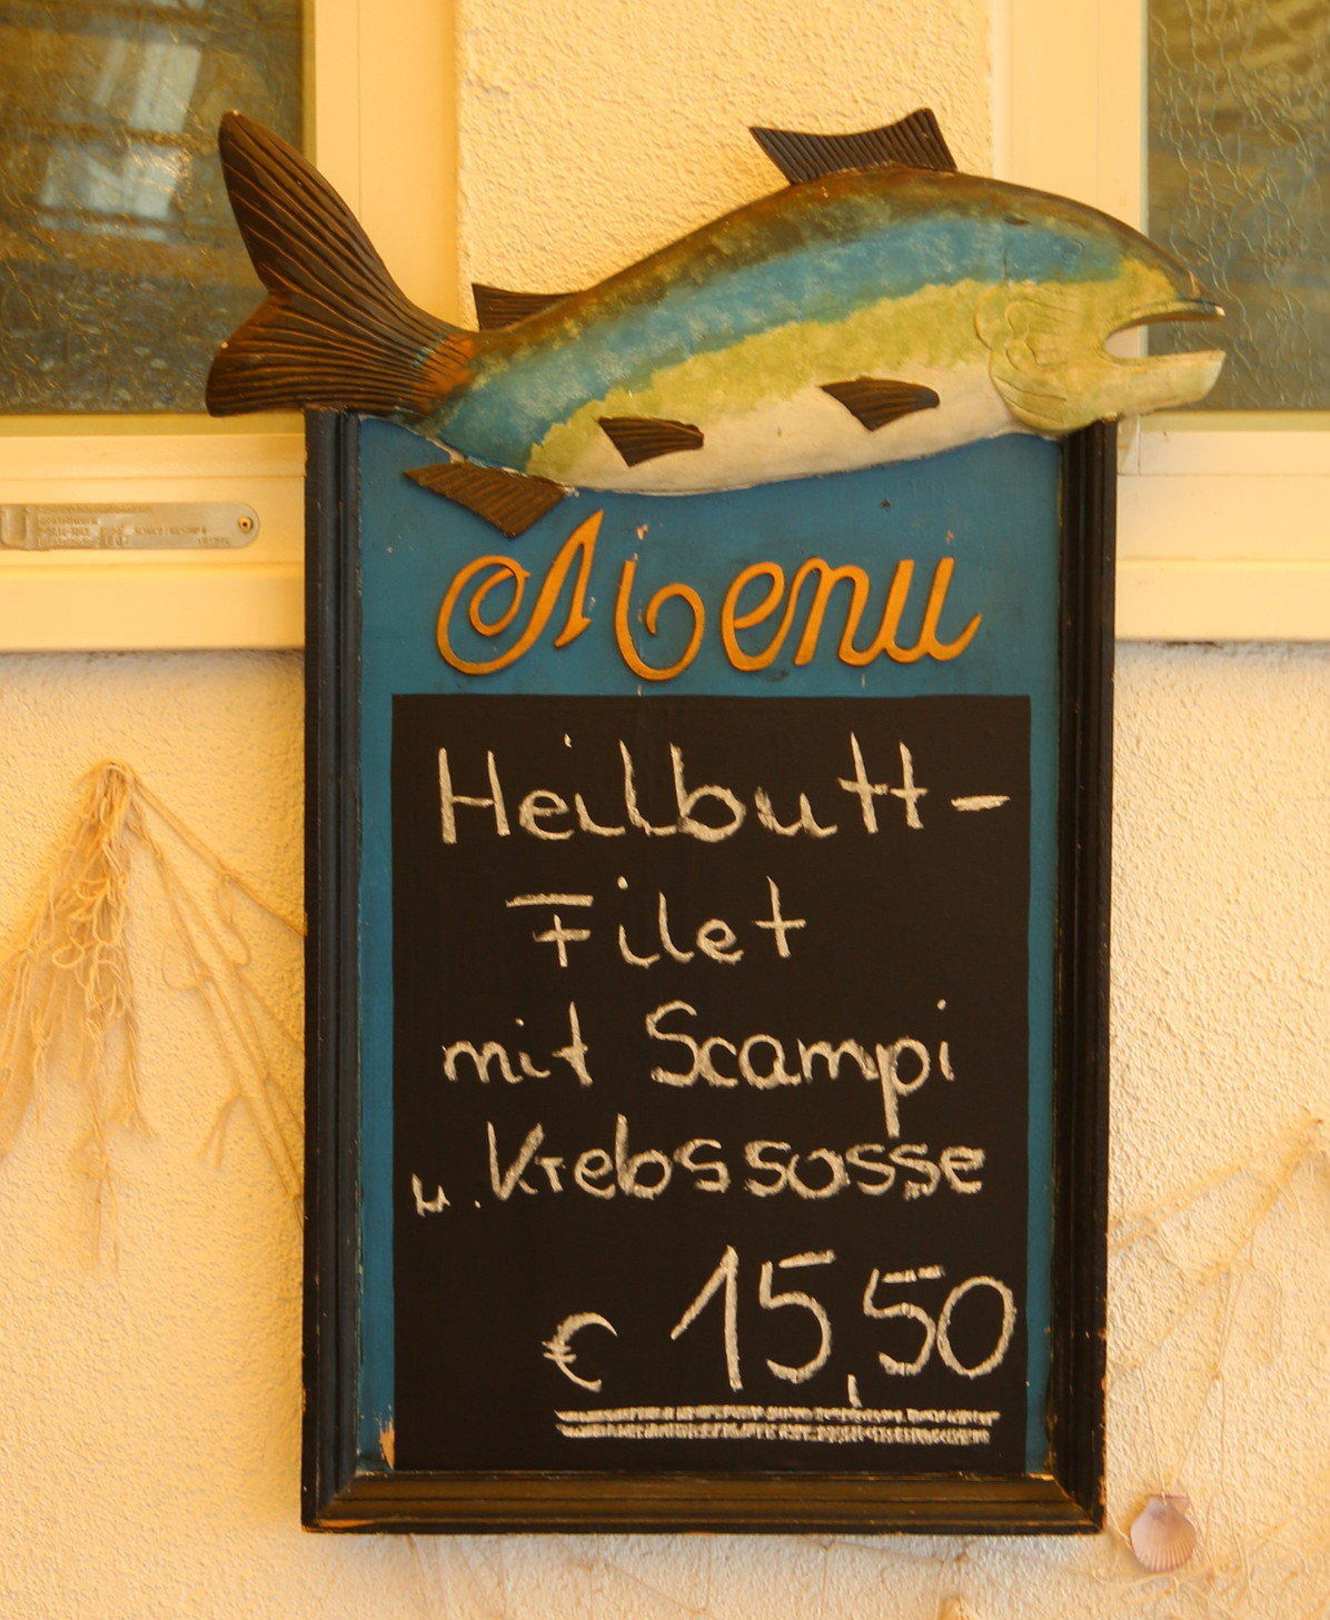 Menu
Heilbutt-
Filet
mit Scampi
u. Krebssosse
€ 15,50